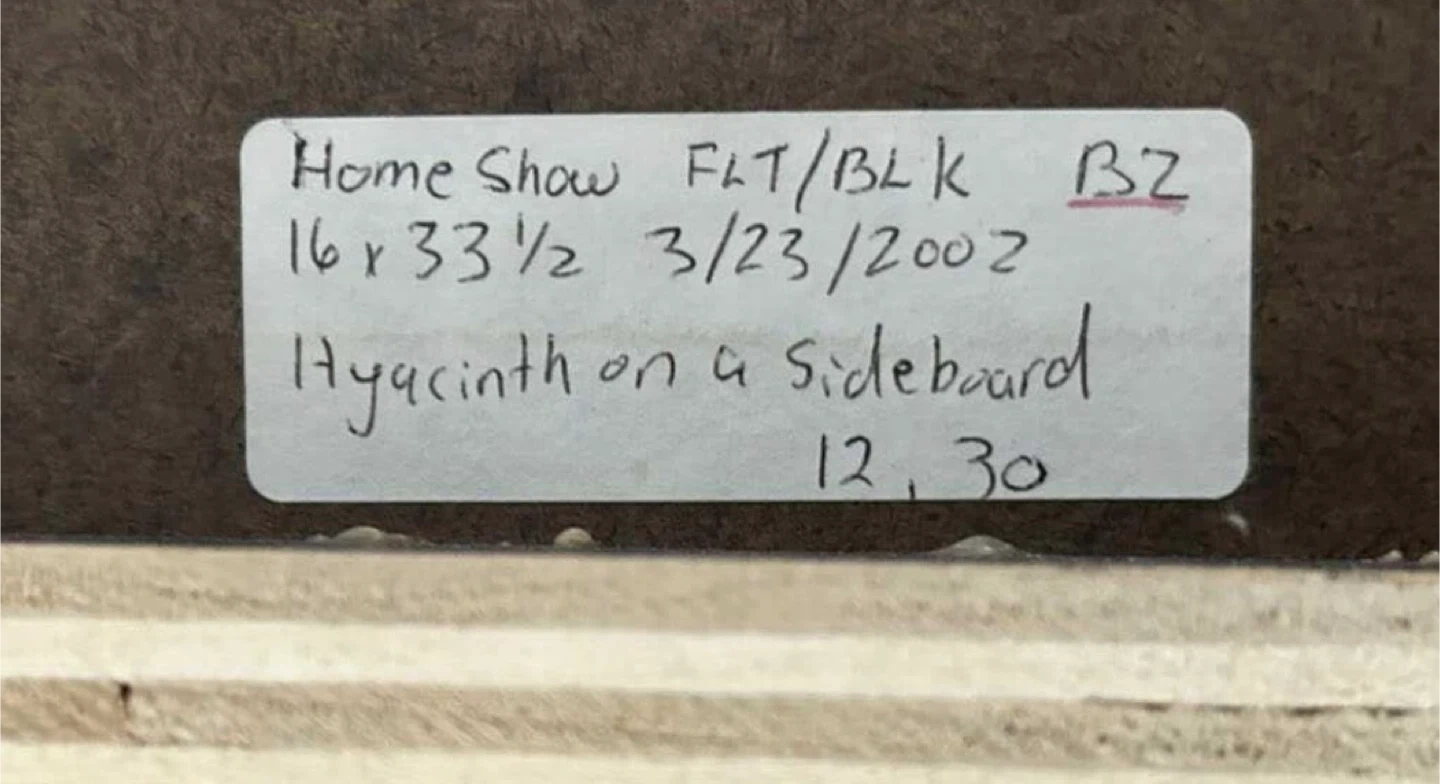 Home Show FLT/BLK BZ
16 x 33 1/2 3/23/2002
Hyacinth on a Sideboard
12, 30